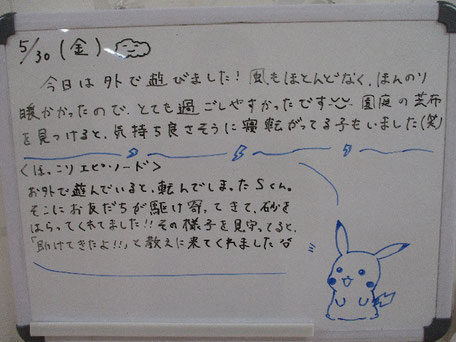 5/30(金)
今日は外で遊びました!風もほとんどなく、ほんのり
暖かかったので、とても過ごしやすかったです 園庭の芝布
を見つけると、気持ち良さそうに寝転がってる子もいました(笑)
<ほっこりエピソード>
お外で遊んでいると、転んでしまったSくん。
そこにお友だちが駆け寄ってきて、砂を
はらってくれてました!!その様子を見守ってると、
「助けてきたよ!!」と教えに来てくれました